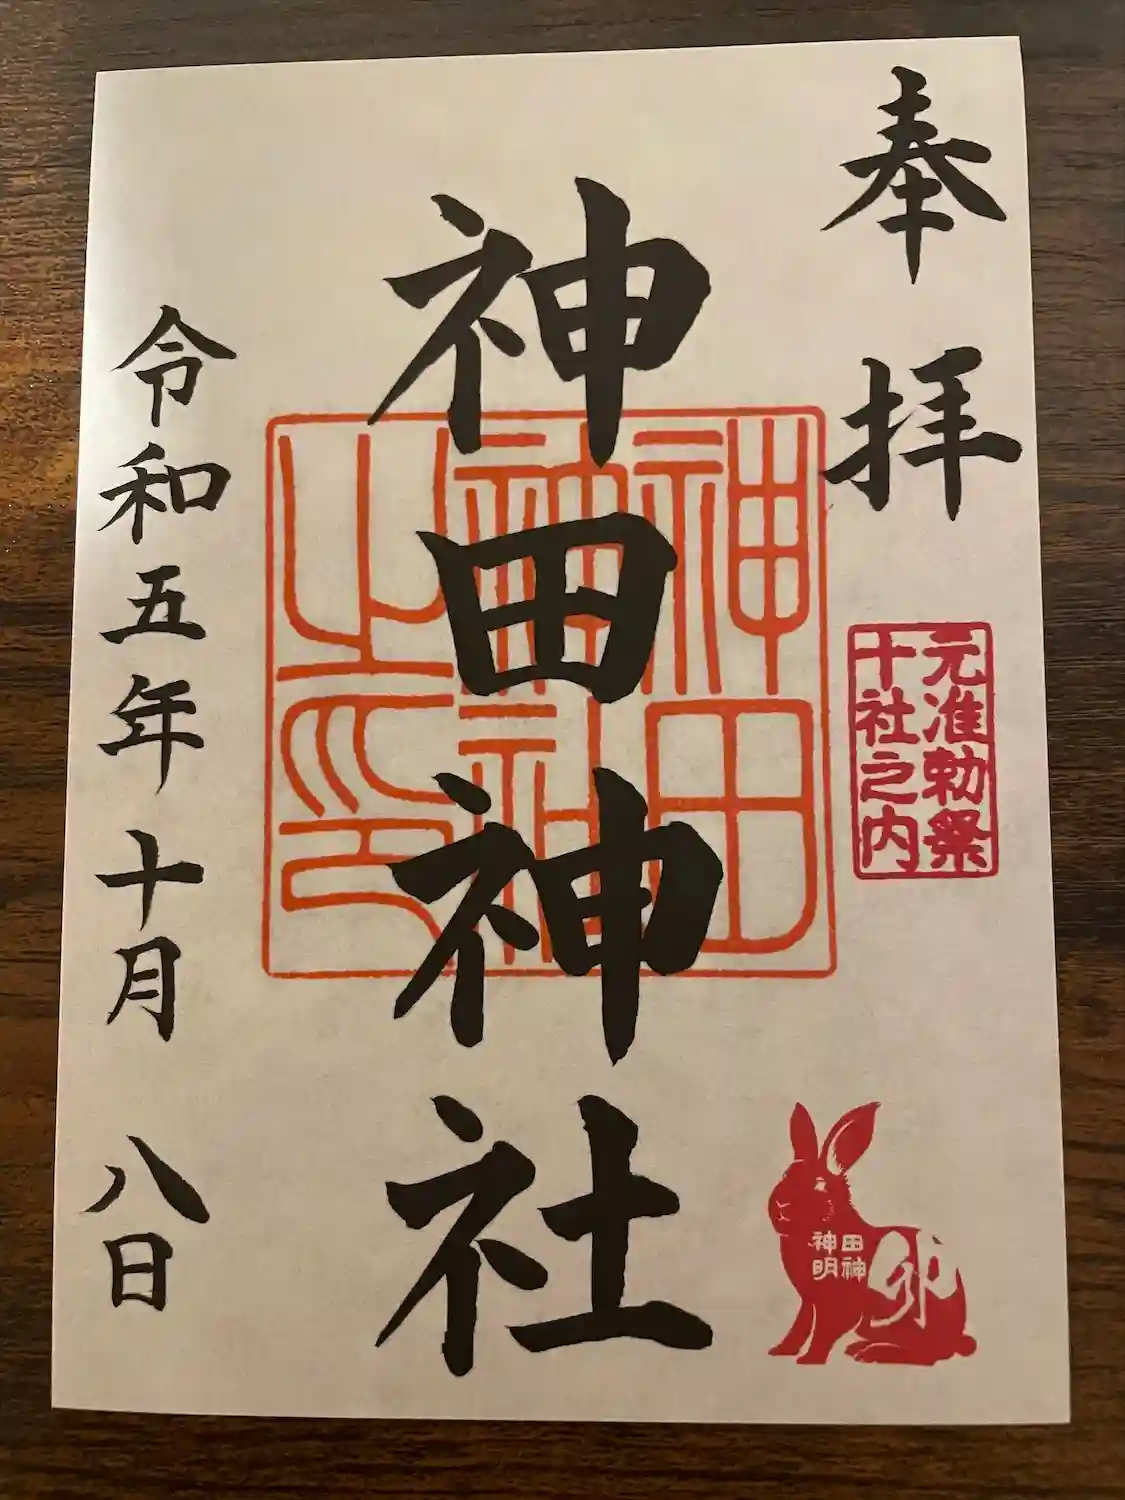 奉拝
元准勅祭
十社之内
神田神社
神田神社之印
田神
神明
卯
令和五年十月八日